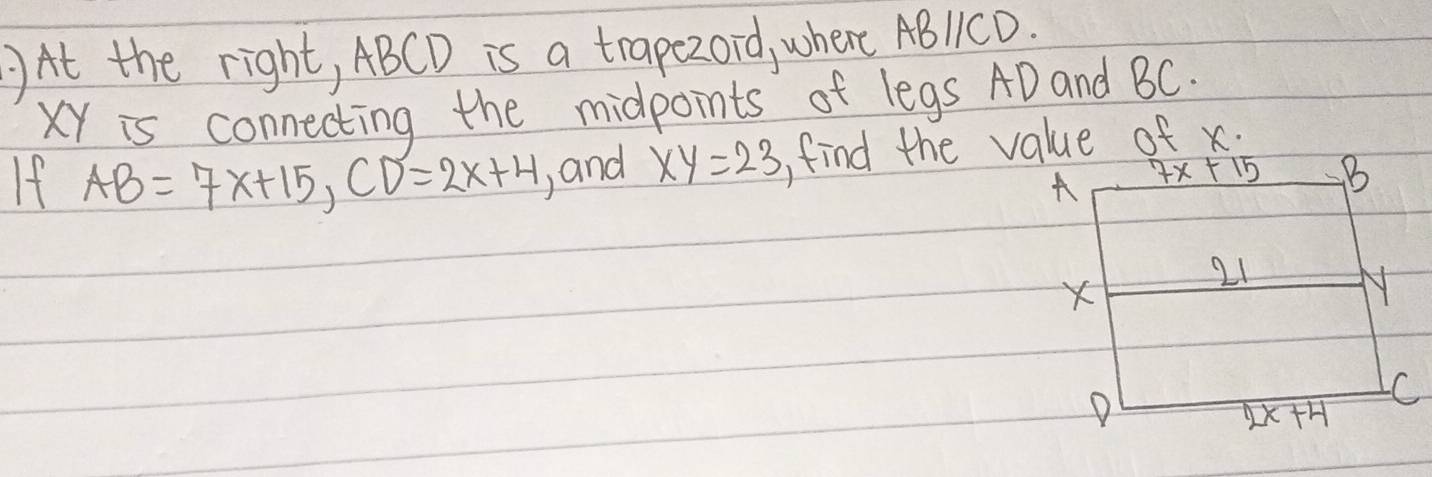 1.) At the right, ABCD is a trapezoid, where AB//CD.
XY is connecting the midpoints of legs AD and BC.
If AB = 7x+15, CD = 2x+4, and XY = 23, find the value of x.
A 7x + 15 B
X 21 Y
D 2x +4 C